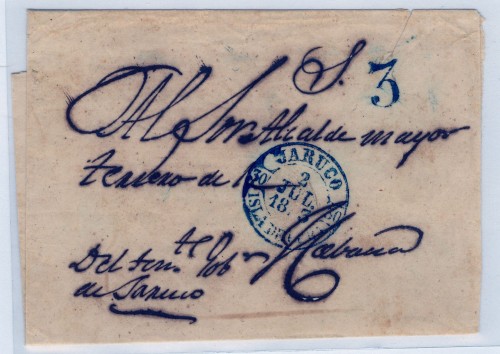 S. 3
Al Sor Alcalde mayor
tercero de la
JARUCO
2
JUL.
Habana
Del ten.te Gob.r
de Jaruco